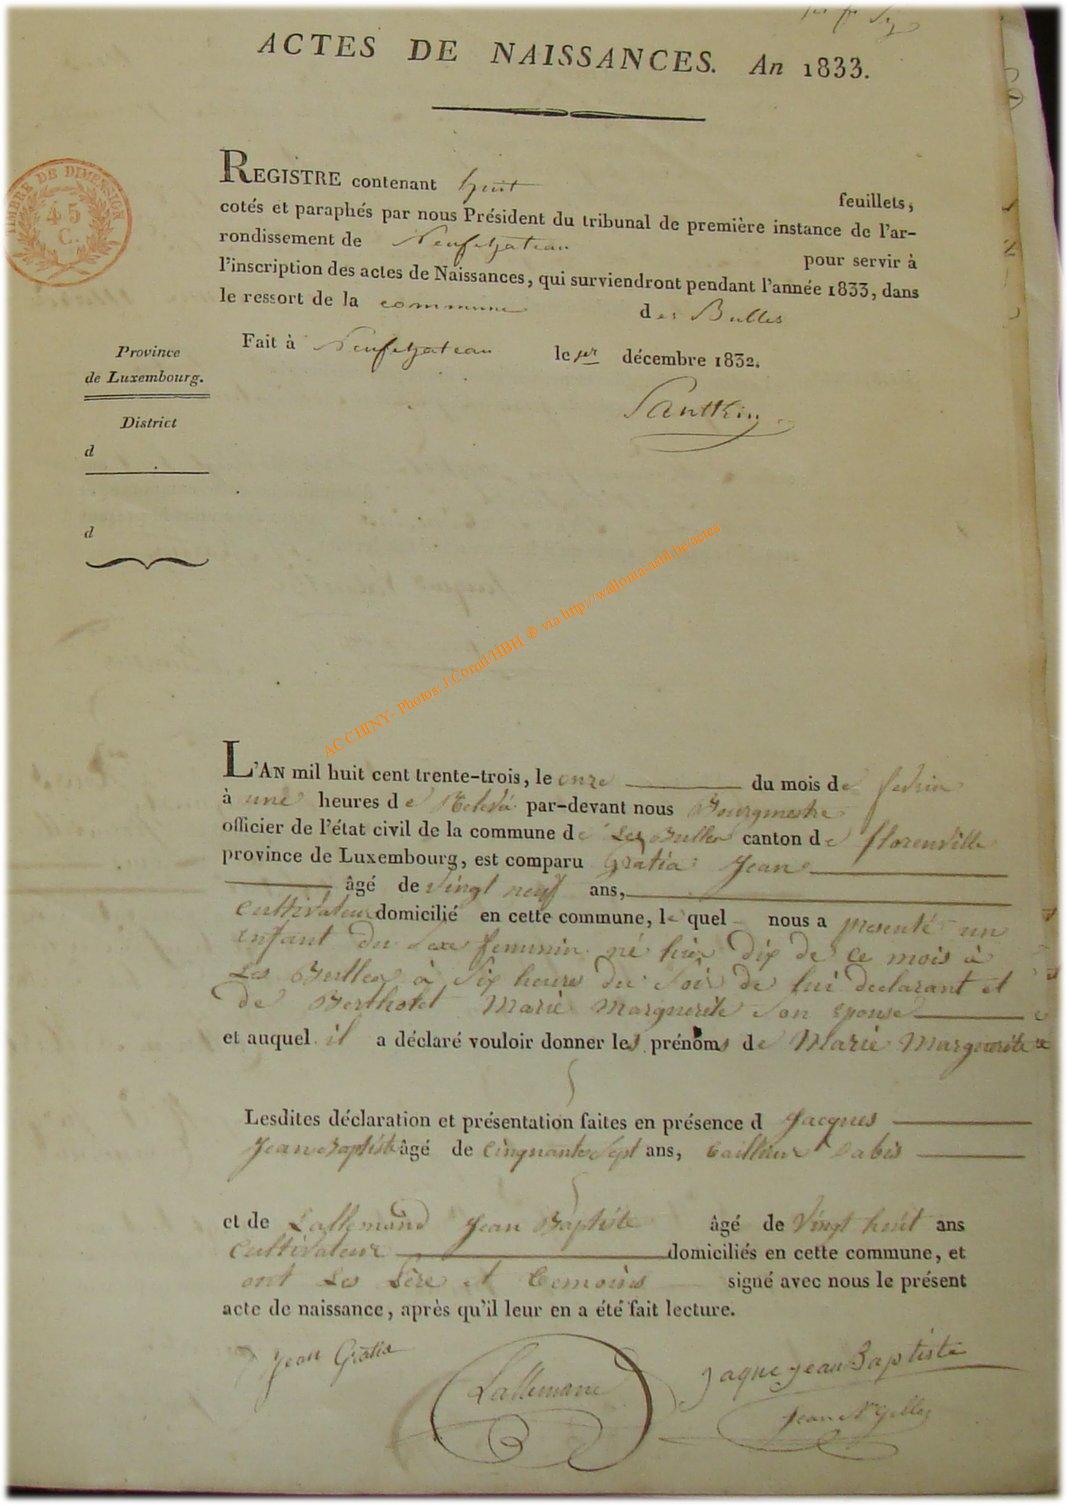 ACTES DE NAISSANCES. An 1833.
TIMBRE DE DIMENSION
45
C.
REGISTRE contenant huit feuillets,
cotés et paraphés par nous Président du tribunal de première instance de l'ar-
rondissement de Neufchateau pour servir à
l'inscription des actes de Naissances, qui surviendront pendant l'année 1833, dans
le ressort de la commune des Bulles
Fait à Neufchateau le 1er décembre 1832.
Province
de Luxembourg.
District
d
d
AC CHINY - Photos: J.Cornil/HBH @ via http://wallonia-asbl.be/actes
L'AN mil huit cent trente-trois, le onze du mois de
à une heures de par-devant nous Bourgmestre
officier de l'état civil de la commune de Les Bulles canton de florenville
province de Luxembourg, est comparu Gratia Jean
âgé de vingt neuf ans,
cultivateur domicilié en cette commune, le quel nous a presenté un
enfant du Sexe feminin né hier dix de ce mois à
Les Bulles à Six heures du Soir de lui declarant et
de Bertholet Marie Marguerite Son epouse
et auquel il a déclaré vouloir donner les prénoms de Marie Marguerite
Lesdites déclaration et présentation faites en présence d Jacques
Jean Baptiste âgé de cinquante Sept ans, tailleur dabis
et de Lallemand Jean Baptiste âgé de Vingt huit ans
Cultivateur domiciliés en cette commune, et
ont Les Père et temoins signé avec nous le présent
acte de naissance, après qu'il leur en a été fait lecture.
Jean Gratia
Lallemand
Jaque jean Baptiste